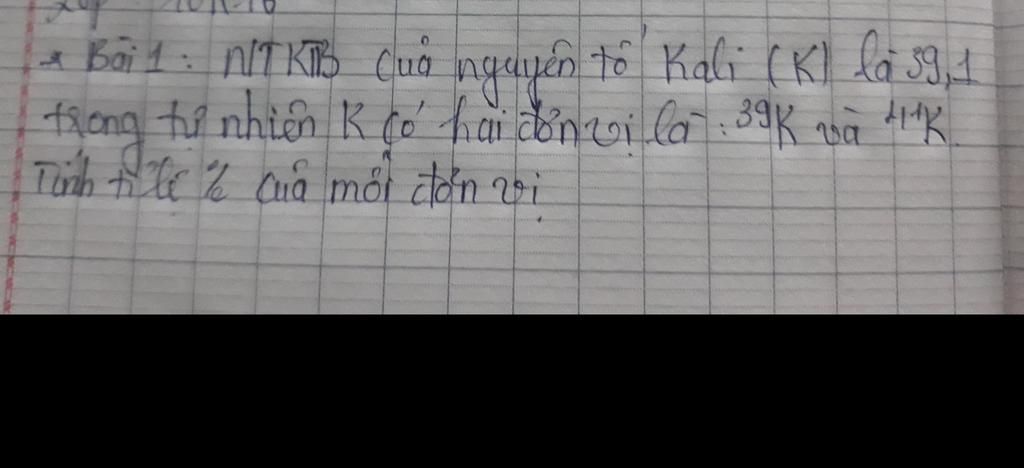 * Bài 1: NTKTB của nguyên tố Kali (K) là 39,1
trong tự nhiên K có hai đơn vị là: ³⁹K và ⁴¹K.
Tính tỉ lệ % của mỗi đơn vị